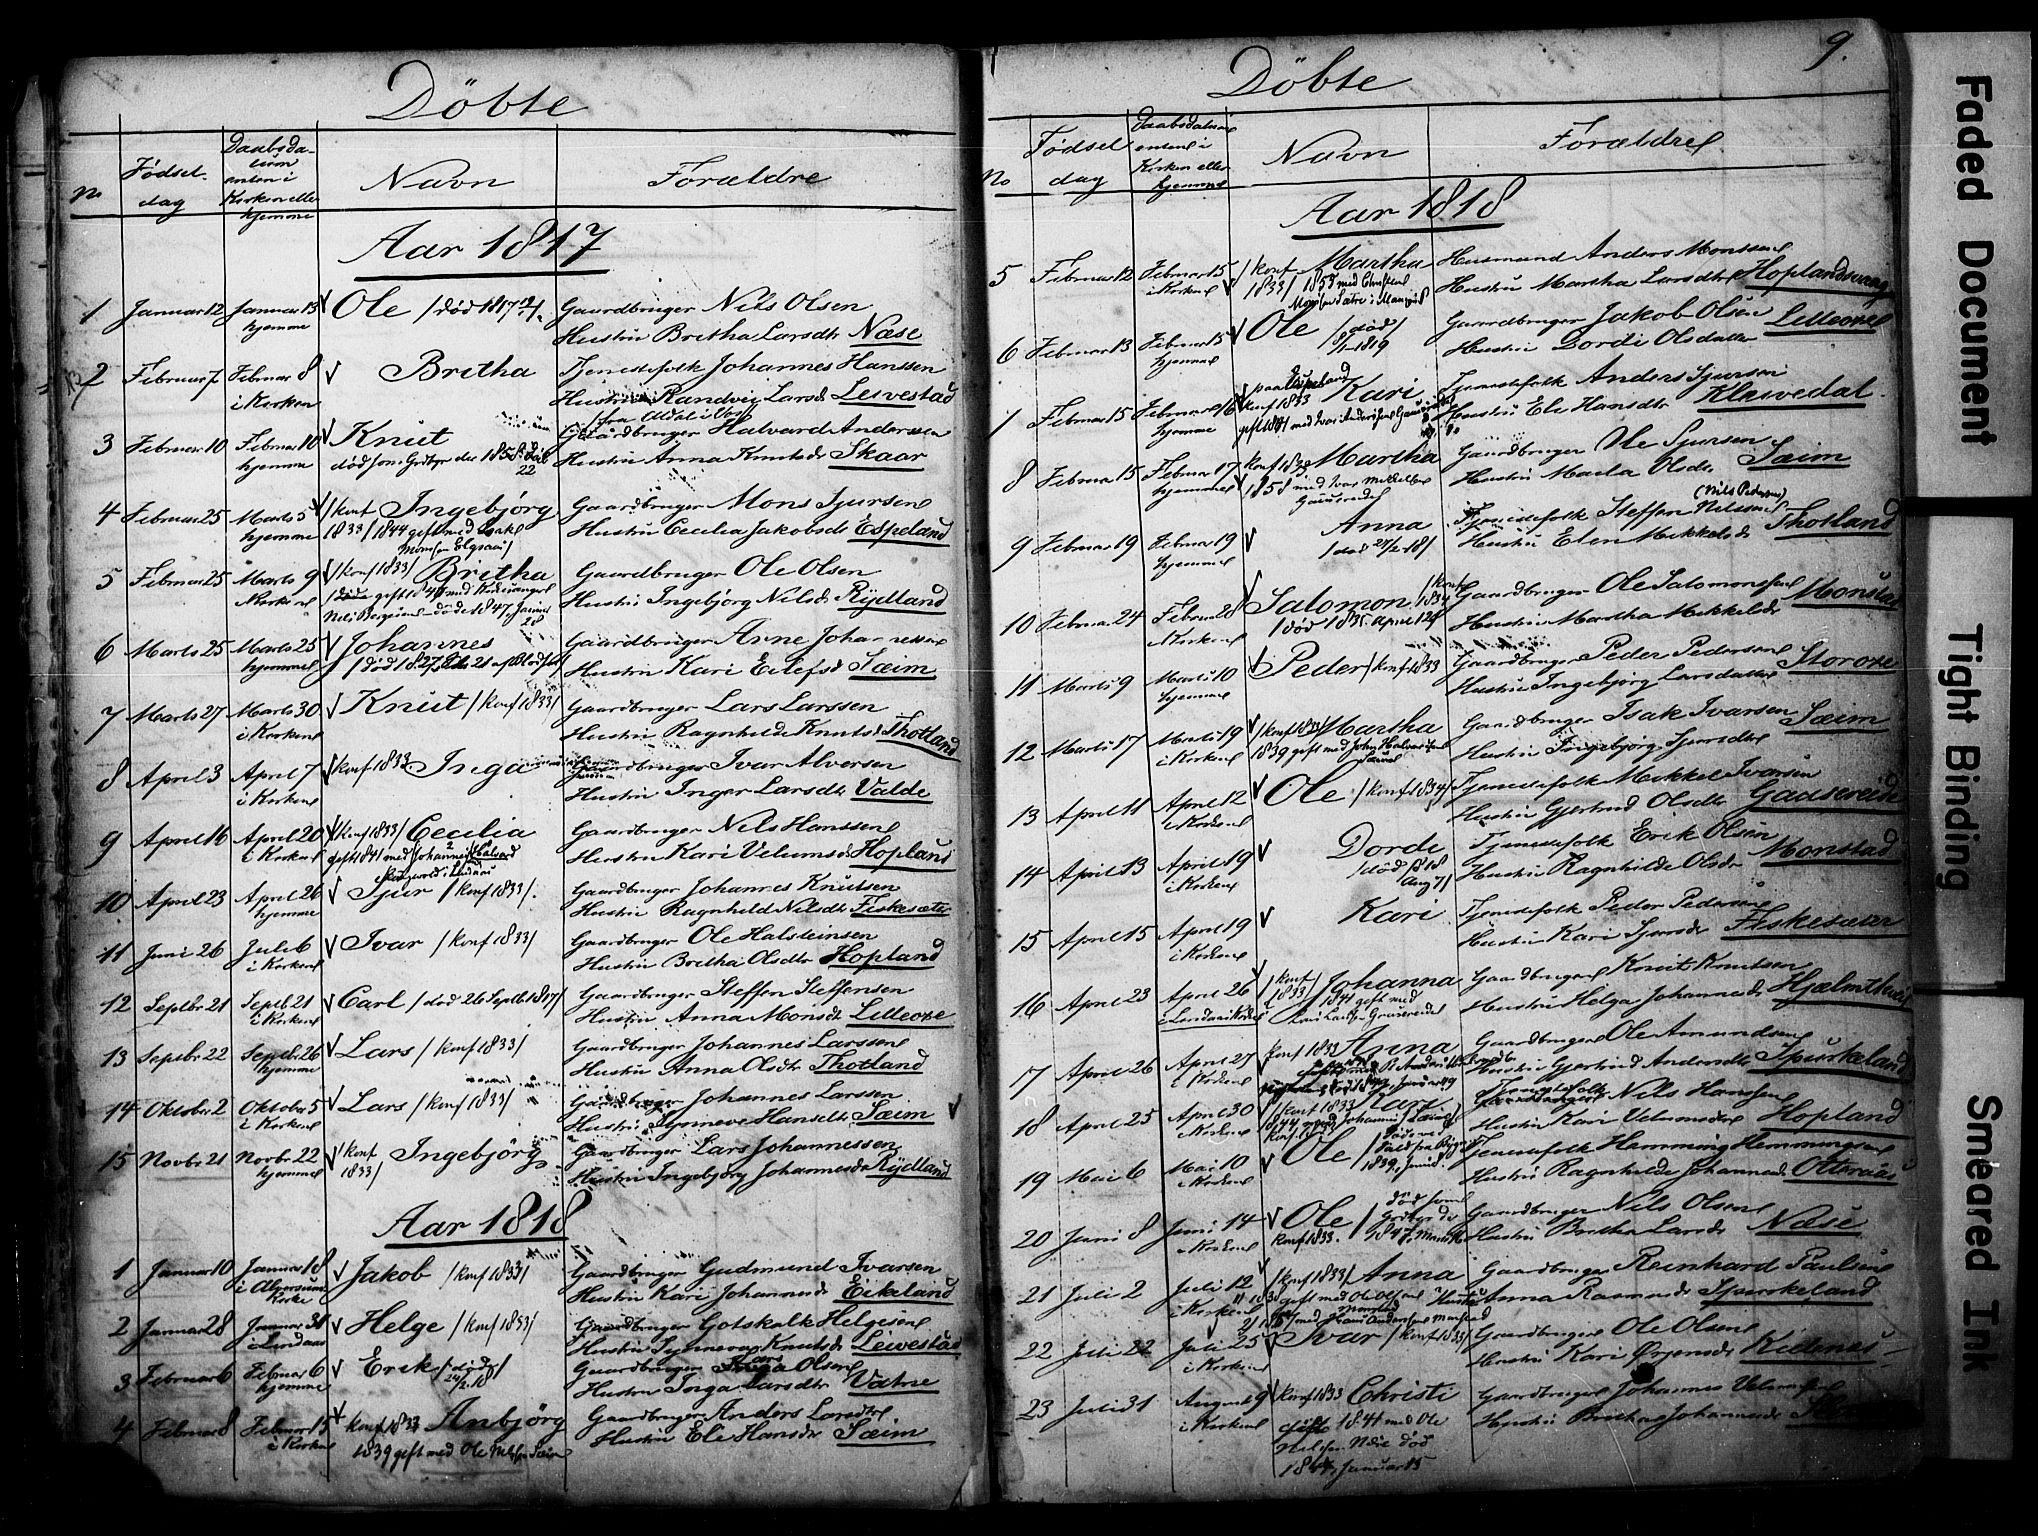 Döbte
No
Födsel-
dag
Daabsda-
tum
enten i
Kirken eller
hjemme
Navn
Forældre
Aar 1817
1 Januar 12 Januar 13 Ole /död 1817
hjemme
Gaardbruger Nils Olsen
Hustru Britha Larsdtr Næse
2 Februar 7 Februar 8 Britha
i Kirken
Tjenestefolk Johannes Hanssen
Hustru Randvei Larsd Leivestad
3 Februar 10 Februar 10 Knut
hjemme
död som
22
Gaardbruger Halvard Anderssen
Hustru Anna Knutsdr Skaar
4 Februar 25 Marts 5 /konf Ingebjörg
hjemme 1833/ 1844 gift med Isak
Gaardbruger Mons Sjursen
Hustru Cecilia Jakobsdt Espeland
5 Februar 25 Marts 9 /konf 1833/ Britha
i Kirken
Gaardbruger Ole Olsen
Hustru Ingebjörg Nilsdr Rydland
6 Marts 25 Marts 25 Johannes
hjemme
Gaardbruger Arne Johannessen
Hustru Kari Eilefsd Sæim
7 Marts 27 Marts 30 Knut /konf 1833/
i Kirken
Gaardbruger Lars Larssen
Hustru Ragnhilde Knutsd Thotland
8 April 3 April 7 konf 1833 Inga
i Kirken
Gaardbruger Ivar Alversen
Hustru Inger Larsdtr Valde
9 April 16 April 20 /konf 1833/ Cecilia
i Kirken gift 1841 med Johannes
Gaardbruger Nils Hanssen
Hustru Kari Velumsd Hopland
10 April 23 April 26 Sjur /konf 1833/
hjemme
Gaardbruger Johannes Knutsen
Hustru Ragnhild Nilsdt Fiskesæter
11 Juni 26 Juli 6 Ivar /konf 1833/
i Kirken
Gaardbruger Ole Halsteinsen
Hustru Britha Olsdtr Hopland
12 Septbr 21 Septb 21 Carl /död 26 Septb 1817/
i Kirken
Gaardbruger Steffen Steffensen
Hustru Anna Monsdt Lilleoxe
13 Septbr 22 Septbr 26 Lars /konf 1833/
hjemme
Gaardbruger Johannes Larssen
Hustru Anna Olsdtr Thotland
14 Oktober 2 Oktober 5 Lars /konf 1833/
i Kirken
Gaardbruger Johannes Larssen
Hustru Synneve Hansdtr Sæim
15 Novbr 21 Novbr 22 /konf Ingebjörg
hjemme 1833/
Gaardbruger Lars Johannessen
Hustru Ingebjörg Johannesd Rydland
Aar 1818
1 Januar 10 Januar 18 Jakob /konf 1833/
i Alversund
Kirke
Gaardbruger Gudmund Ivarsen
Hustru Kari Johannesd Eikeland
2 Januar 28 Januar 30 Helge /konf 1833/
i Lindaas
Gaardbruger Gotskalk Helgesen
Hustru Synneva Knutsd Leivestad
3 Februar 6 Februar 6 Erik /död
hjemme 24/2-18/
Gaardbruger Olsen
Hustru Inga Larsdtr Vatne
4 Februar 8 Februar 15 konf 1833 Anbjörg
i Kirken 1839 gift med Ole Nilsen Sæim
Gaardbruger Anders Larsdtr
Hustru Eli Hansdr Sæim
9.
Döbte
No
Födsel
dag
Daabsdatum
enten i
Kirken eller
hjemme
Navn
Forældre
Aar 1818
5 Februar 12 Februar 15 /konf Martha
i Kirken 1833/
Husmand Anders Monssen
Hustru Martha Larsdtr Hoplandsvang
6 Februar 13 Februar 15 Ole /död/
hjemme 8/1-1819
Gaardbruger Jakob Olsen Lilleoxe
Hustru Dordi Olsdatter
1 Februar 15 Februar 16 konf 1833 Kari
hjemme
Tjenestefolk Anders Sjursen
Hustru Eli Hansdtr Kleivedal
8 Februar 15 Februar 17 konf 1833 Martha
hjemme 1858 med Ivar Mikkelsen
Gaardbruger Ole Sjursen
Hustru Marta Olsdr Sæim
9 Februar 19 Februar 19 Anna
hjemme
(Nils Pedersen)
Tjenestefolk Steffen Nilssen
Hustru Elen Mikkelsd Thotland
10 Februar 24 Februar 28 Salomon /konf 1834
i Kirken /död 1835 April 12/
Gaardbruger Ole Salomonsen
Hustru Martha Mikkelsdr Monstad
11 Marts 9 Marts 10 Peder /konf 1833
hjemme
Gaardbruger Peder Pedersen Storoxe
Hustru Ingebjörg Larsdatter
12 Marts 17 Marts 19 /konf 1833/ Martha
i Kirken 1839 gift med John Halvorsen
Gaardbruger Isak Ivarsen Sæim
Hustru Ingebjörg Sjursdtr
13 April 11 April 12 Ole /konf 1834/
i Kirken
Tjenestefolk Mikkel Ivarsen
Hustru Gjertrud Olsdtr Gaasereide
14 April 13 April 19 Dorde
i Kirken /död 1818
Aug 7/
Tjenestefolk Erik Olsen
Hustru Ragnhilde Olsdr Monstad
15 April 15 April 19 Kari
i Kirken
Tjenestefolk Peder Pedersen
Hustru Kari Sjursdr Fiskesæter
16 April 23 April 26 /konf Johanna
i Lindaas Kirke 1833/ 1841 gift med
Gaardbruger Knut Knutsen
Hustru Helga Johannesd Hjelmtveit
17 April 26 April 27 konf 1833 Anna
i Kirken
Gaardbruger Ole Amundsen
Hustru Gjertrud Andersdtr Spurkeland
18 April 25 April 30 /konf 1833 Kari
i Kirken
Tjenestefolk Nils Hanssen
Hustru Kari Velumsdtr Hopland
19 Mai 6 Mai 10 Ole
i Kirken
Tjenestefolk Hemming Hemmingsen
Hustru Ragnhilde Johannesd Otteraas
20 Juni 8 Juni 14 Ole /död som
i Kirken konf 1833.
Gaardbruger Nils Olsen
Hustru Britha Larsdr Næse
21 Juli 2 Juli 12 /konf 1833/ Anna
i Kirken gift med Ole Olsen
Gaardbruger Reinhard Paulsen
Hustru Anna Rasmusd Spurkeland
22 Juli 22 Juli 25 Ivar /konf 1833/
i Kirken
Gaardbruger Ole Olsen
Hustru Kari Örjensdr Kidenes
23 Juli 31 August 9 konf 1833 Christi
i Kirken gift 1841 med Ole
Nilssen Næse död
Januar 15
Gaardbruger Johannes Velumsen
Hustru Britha Johannesdr
Faded Document
Tight Binding
Smeared Ink